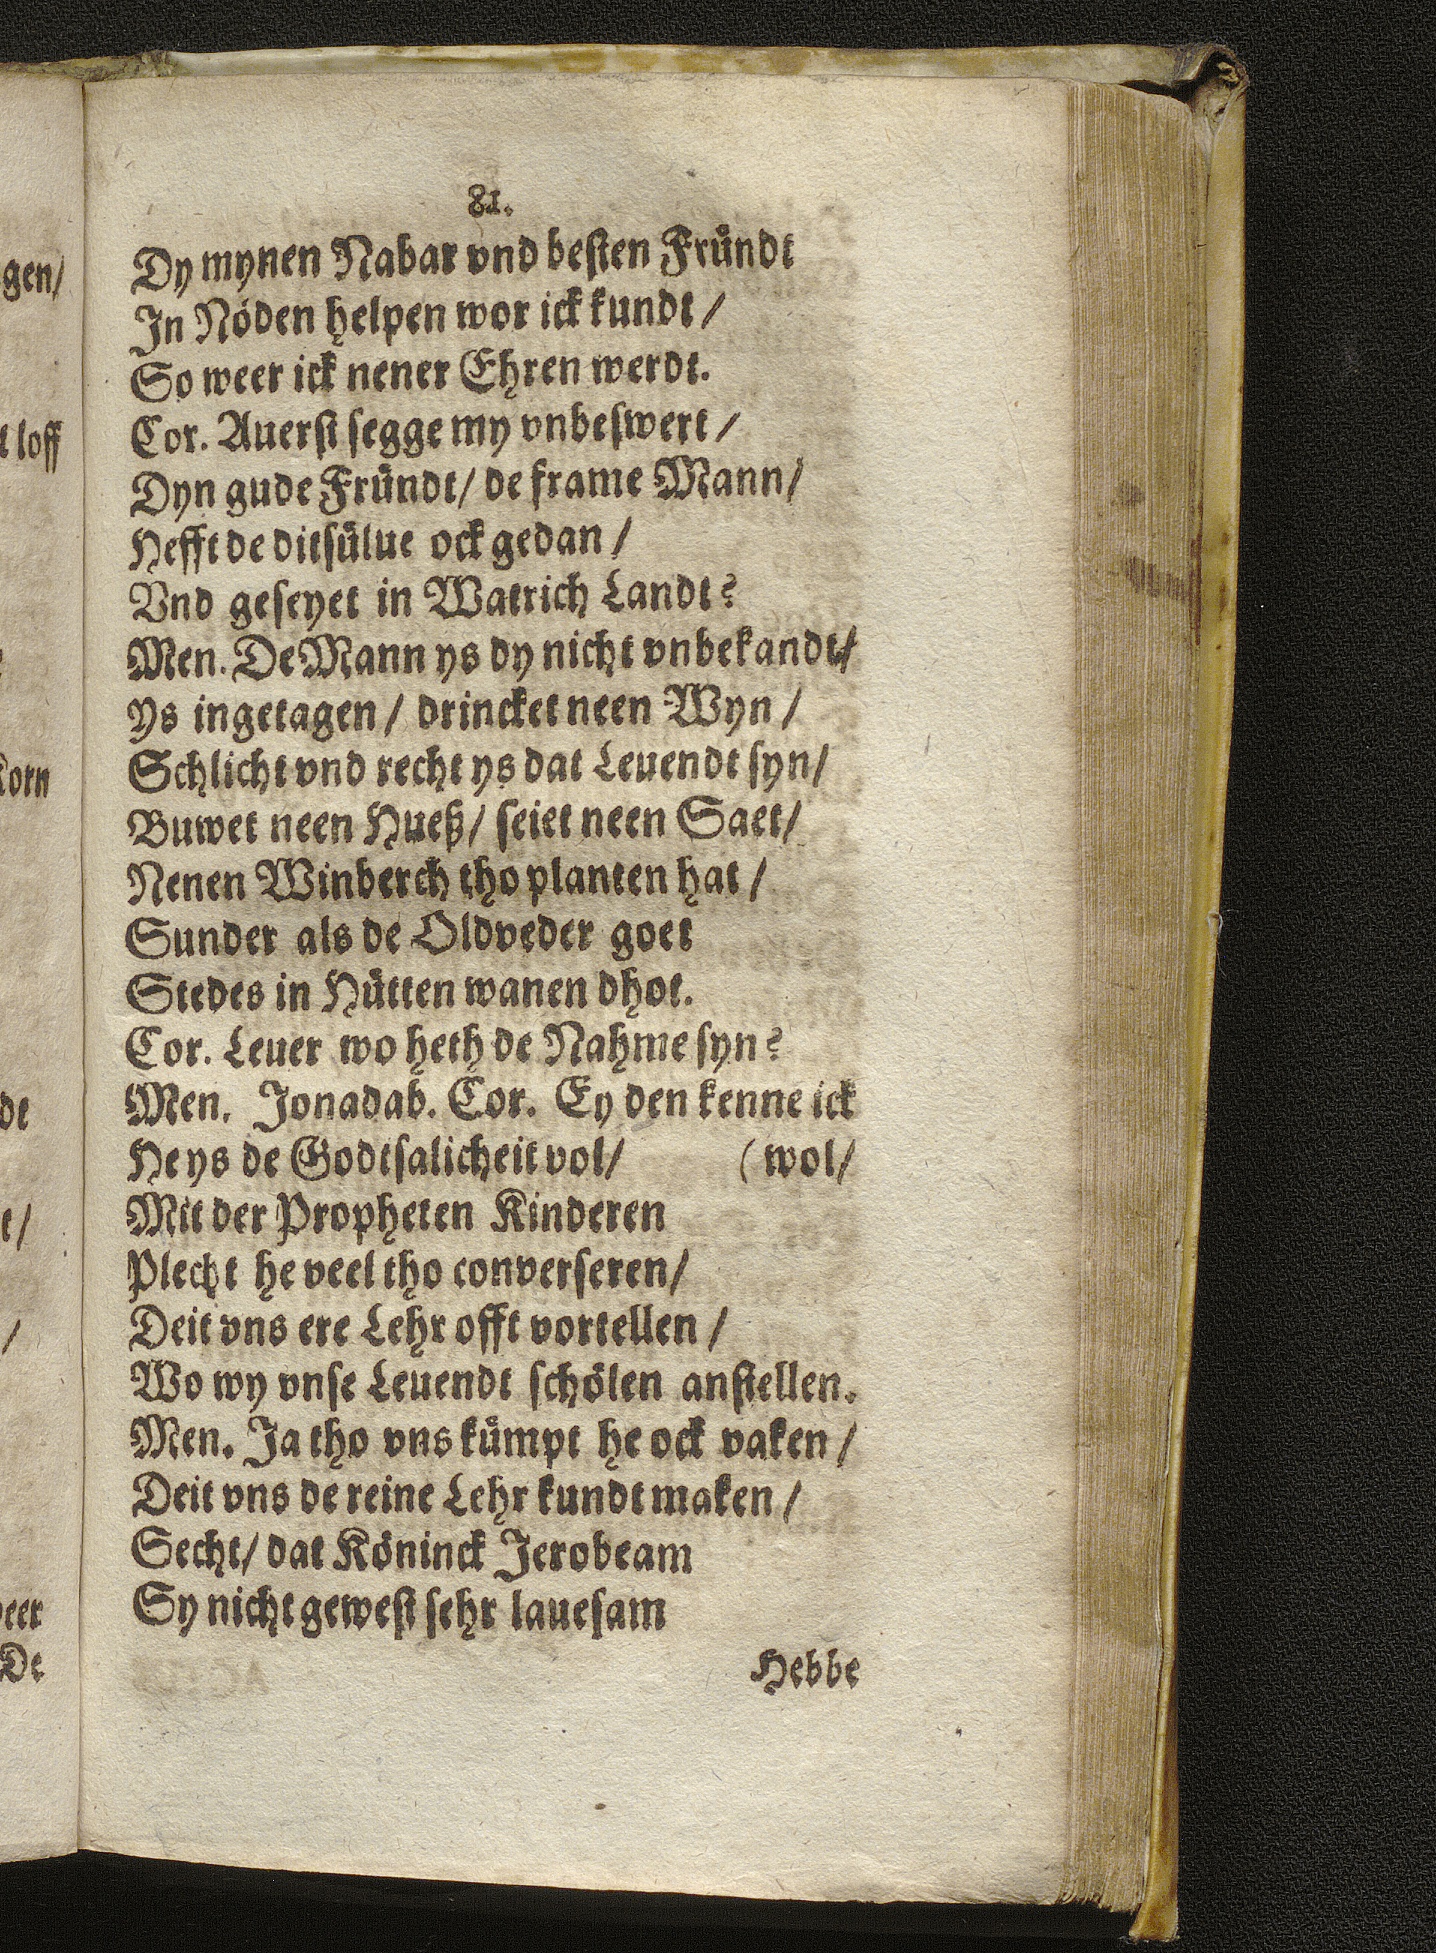 81.
Dy mynen Nabar vnd besten Fründt
In Nöden helpen wor ick kundt /
So weer ick nener Ehren werdt.
Cor. Auerst segge my vnbeswert /
Dyn gude Fründt / de frame Mann /
Hefft de ditsülue ock gedan /
Vnd geseyet in Watrich Landt?
Men. De Mann ys dy nicht vnbekandt /
Ys ingetagen / drincket neen Wyn /
Schlicht vnd recht ys dat Leuendt syn /
Buwet neen Hueß / seiet neen Saet /
Nenen Winberch tho planten hat /
Sunder als de Oldveder goet
Stedes in Hütten wanen dhot.
Cor. Leuer wo heth de Nahme syn?
Men. Jonadab. Cor. Ey den kenne ick
He ys de Godtsalicheit vol / ( wol /
Mit der Propheten Kinderen
Plecht he veel tho converseren /
Deit vns ere Lehr offt vortellen /
Wo wy vnse Leuendt schölen anstellen.
Men. Ja tho vns kümpt he ock vaken /
Deit vns de reine Lehr kundt maken /
Secht / dat Köninck Jerobeam
Sy nicht gewest sehr lauesam
Hebbe
gen /
t loff
Korn
dt
t /
/
weer
De